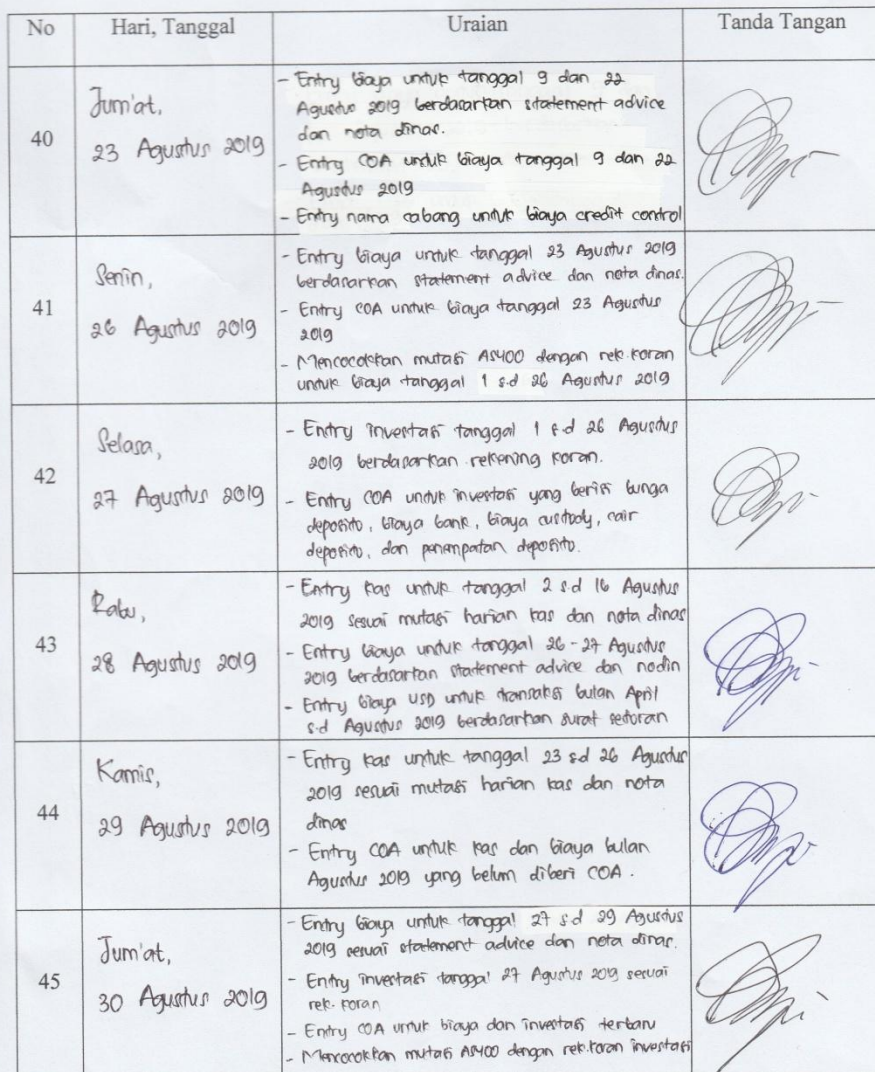 No Hari, Tanggal Uraian Tanda Tangan
40
Jum'at,
23 Agustus 2019
- Entry biaya untuk tanggal 9 dan 22
Agustus 2019 berdasarkan statement advice
dan nota dinas.
- Entry COA untuk biaya tanggal 9 dan 22
Agustus 2019
- Entry nama cabang untuk biaya credit control
41
Senin,
26 Agustus 2019
- Entry biaya untuk tanggal 23 Agustus 2019
berdasarkan statement advice dan nota dinas.
- Entry COA untuk biaya tanggal 23 Agustus
2019
- Mencocokkan mutasi AS400 dengan rek.koran
untuk biaya tanggal 1 s.d 26 Agustus 2019
42
Selasa,
27 Agustus 2019
- Entry investasi tanggal 1 s.d 26 Agustus
2019 berdasarkan rekening koran.
- Entry COA untuk investasi yang berisi bunga
deposito, biaya bank, biaya custody, cair
deposito, dan penempatan deposito.
43
Rabu,
28 Agustus 2019
- Entry kas untuk tanggal 2 s.d 16 Agustus
2019 sesuai mutasi harian kas dan nota dinas
- Entry biaya untuk tanggal 26-27 Agustus
2019 berdasarkan statement advice dan nodin
- Entry biaya USD untuk transaksi bulan April
s.d Agustus 2019 berdasarkan surat setoran
44
Kamis,
29 Agustus 2019
- Entry kas untuk tanggal 23 s.d 26 Agustus
2019 sesuai mutasi harian kas dan nota
dinas
- Entry COA untuk kas dan biaya bulan
Agustus 2019 yang belum diberi COA.
45
Jum'at,
30 Agustus 2019
- Entry biaya untuk tanggal 27 s.d 29 Agustus
2019 sesuai statement advice dan nota dinas.
- Entry investasi tanggal 27 Agustus 2019 sesuai
rek. koran
- Entry COA untuk biaya dan investasi terbaru
- Mencocokkan mutasi AS400 dengan rek.koran investasi